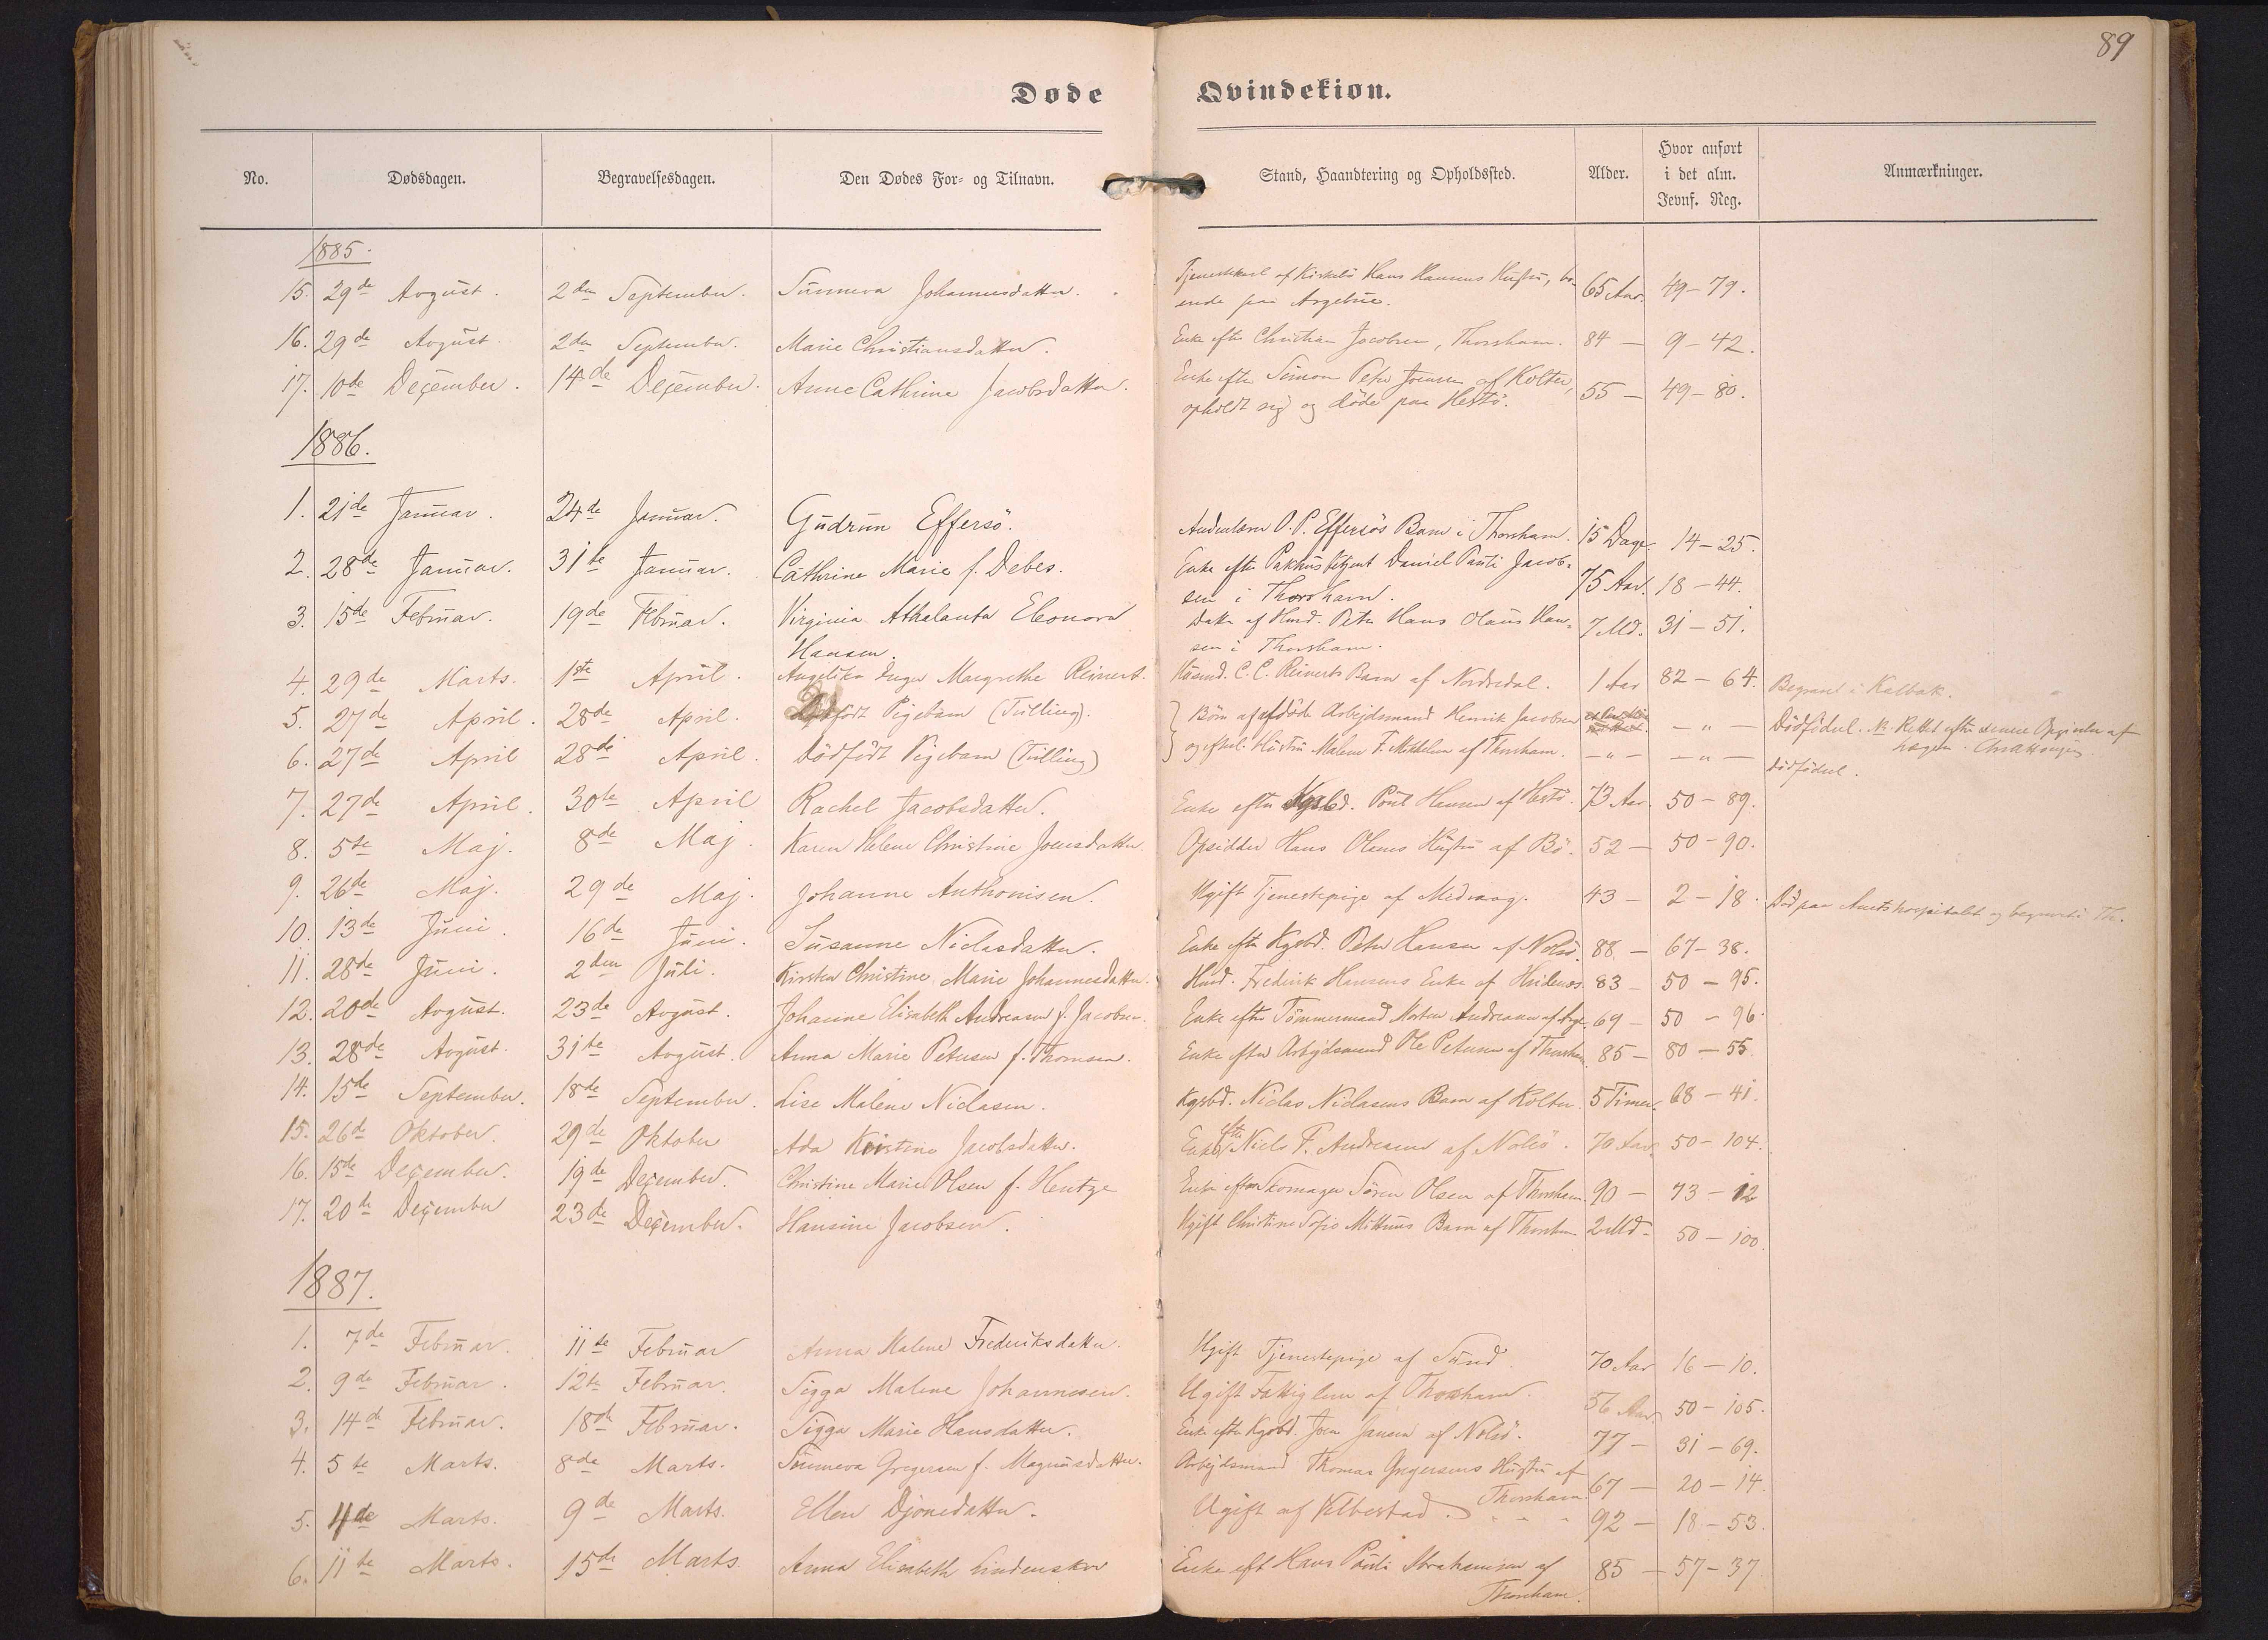 89
Døde Qvindekiøn.
No. Dødsdagen. Begravelsesdagen. Den Dødes For- og Tilnavn. Stand, Haandtering og Opholdssted. Alder. Hvor anført i det alm. Jevnf. Reg. Anmærkninger.
1885.
15. 29de August. 2den September. Sunneva Johannesdatter. Tjenestekarl af Kirkebö Hans Hansens Hustru, bo-
ende paa Argebue. 65 Aar. 49-79.
16. 29de August. 2den September. Marie Christiansdatter. Enke efter Christian Jacobsen, Thorshavn. 84 — 9-42.
17. 10de December. 14de December. Anne Cathrine Jacobsdatter. Enke efter Simon Peter Joensen af Kolter,
opholdt sig og döde paa Hestö. 55 — 49-80.
1886.
1. 21de Januar. 24de Januar. Gudrun Effersö. Andenlærer O. P. Effersös Barn i Thorshavn. 15 Dage. 14-25.
2. 28de Januar. 31te Januar. Cathrine Marie f. Debes. Enke efter Pakhusbetjent Daniel Pauli Jacob-
sen i Thorshavn. 75 Aar. 18-44.
3. 15de Februar. 19de Februar. Virginia Athalanta Eleonora Datter af Hmd. Peter Hans Olaus Han- 7 Md. 31-51.
Hansen. sen i Thorshavn.
4. 29de Marts. 1ste April. Angelika Inger Margrethe Reinert. Husmd. C. C. Reinerts Barn af Nordredal. 1 Aar 82-64. Begravet i Kalbak.
5. 27de April. 28de April. Pigebarn (Tvilling). Börn af afdöde Arbejdsmand Henrik Jacobsen — " — Dödfödsel. Rettet efter senere Opgivelse af
6. 27de April 28de April. Dödfödt Pigebarn (Tvilling) og efterl. Hustru Malene F. Mikkelsen af Thorshavn. — " — — " — Dödfödsel.
7. 27de April. 30te April Rachel Jacobsdatter. Enke efter Kgsbd. Poul Hansen af Hestö. 73 Aar. 50-89.
8. 5te Maj. 8de Maj. Karen Helene Christine Joensdatter. Opsidder Hans Olsens Hustru af Bö. 52 — 50-90.
9. 26de Maj. 29de Maj. Johanne Anthonisen. Ugift Tjenestepige af Midvaag. 43 — 2-18. Död paa Amtshospitalet og begravet i Th.
10. 13de Juni. 16de Juni. Susanne Niclasdatter. Enke efter Kgsbd. Peter Hansen af Nolsö. 88 — 67-38.
11. 28de Juni. 2den Juli. Kirsten Christine Marie Johannesdatter. Hmd. Frederik Hansens Enke af Hvidenæs. 83 — 50-95.
12. 20de August. 23de August. Johanne Elisabeth Andreasen f. Jacobsen. Enke efter Tömmermand Morten Andreasen af Arge. 69 — 50-96.
13. 28de August. 31te August. Anna Marie Petersen f. Thomsen. Enke efter Arbejdsmand Ole Petersen af Thorshavn. 85 — 80-55.
14. 15de September. 18de September. Lise Malene Niclasen. Kgsbd. Niclas Niclasens Barn af Kolter. 5 Timer. 68-41.
15. 26de Oktober. 29de Oktober Ada Kirstine Jacobsdatter. Enke efter Niels F. Andreasen af Nolsö. 70 Aar. 50-104.
16. 15de December. 19de December. Christine Marie Olsen f. Hentze Enke efter Skomager Sören Olsen af Thorshavn. 90 — 73-12
17. 20de December 23de December. Hansine Jacobsen. Ugift Christine Sofie Barn af Thorshavn. 2 Md. 50-100.
1887.
1. 7de Februar. 11te Februar Anna Malene Frederiksdatter. Ugift Tjenestepige af Sund. 70 Aar 16-10.
2. 9de Februar. 12te Februar. Sigga Malene Johannesen. Ugift Fattiglem af Thorshavn. 56 Aar. 50-105.
3. 14de Februar. 18de Februar. Sigga Marie Hansdatter. Enke efter Kgsbd. Joen Jansen af Nolsö. 77 — 31-69.
4. 5te Marts. 8de Marts. Sunneva Gregersen f. Magnusdatter. Arbejdsmand Thomas Gregersens Hustru af
Thorshavn. 67 — 20-14.
5. 4de Marts. 9de Marts. Ellen Djonedatter. Ugift af Velbestad. 92 — 18-53.
6. 11te Marts. 15de Marts. Anna Elisabeth Lindenskov Enke eft Hans Pauli Abrahamsen af
Thorshavn. 85 — 57-37